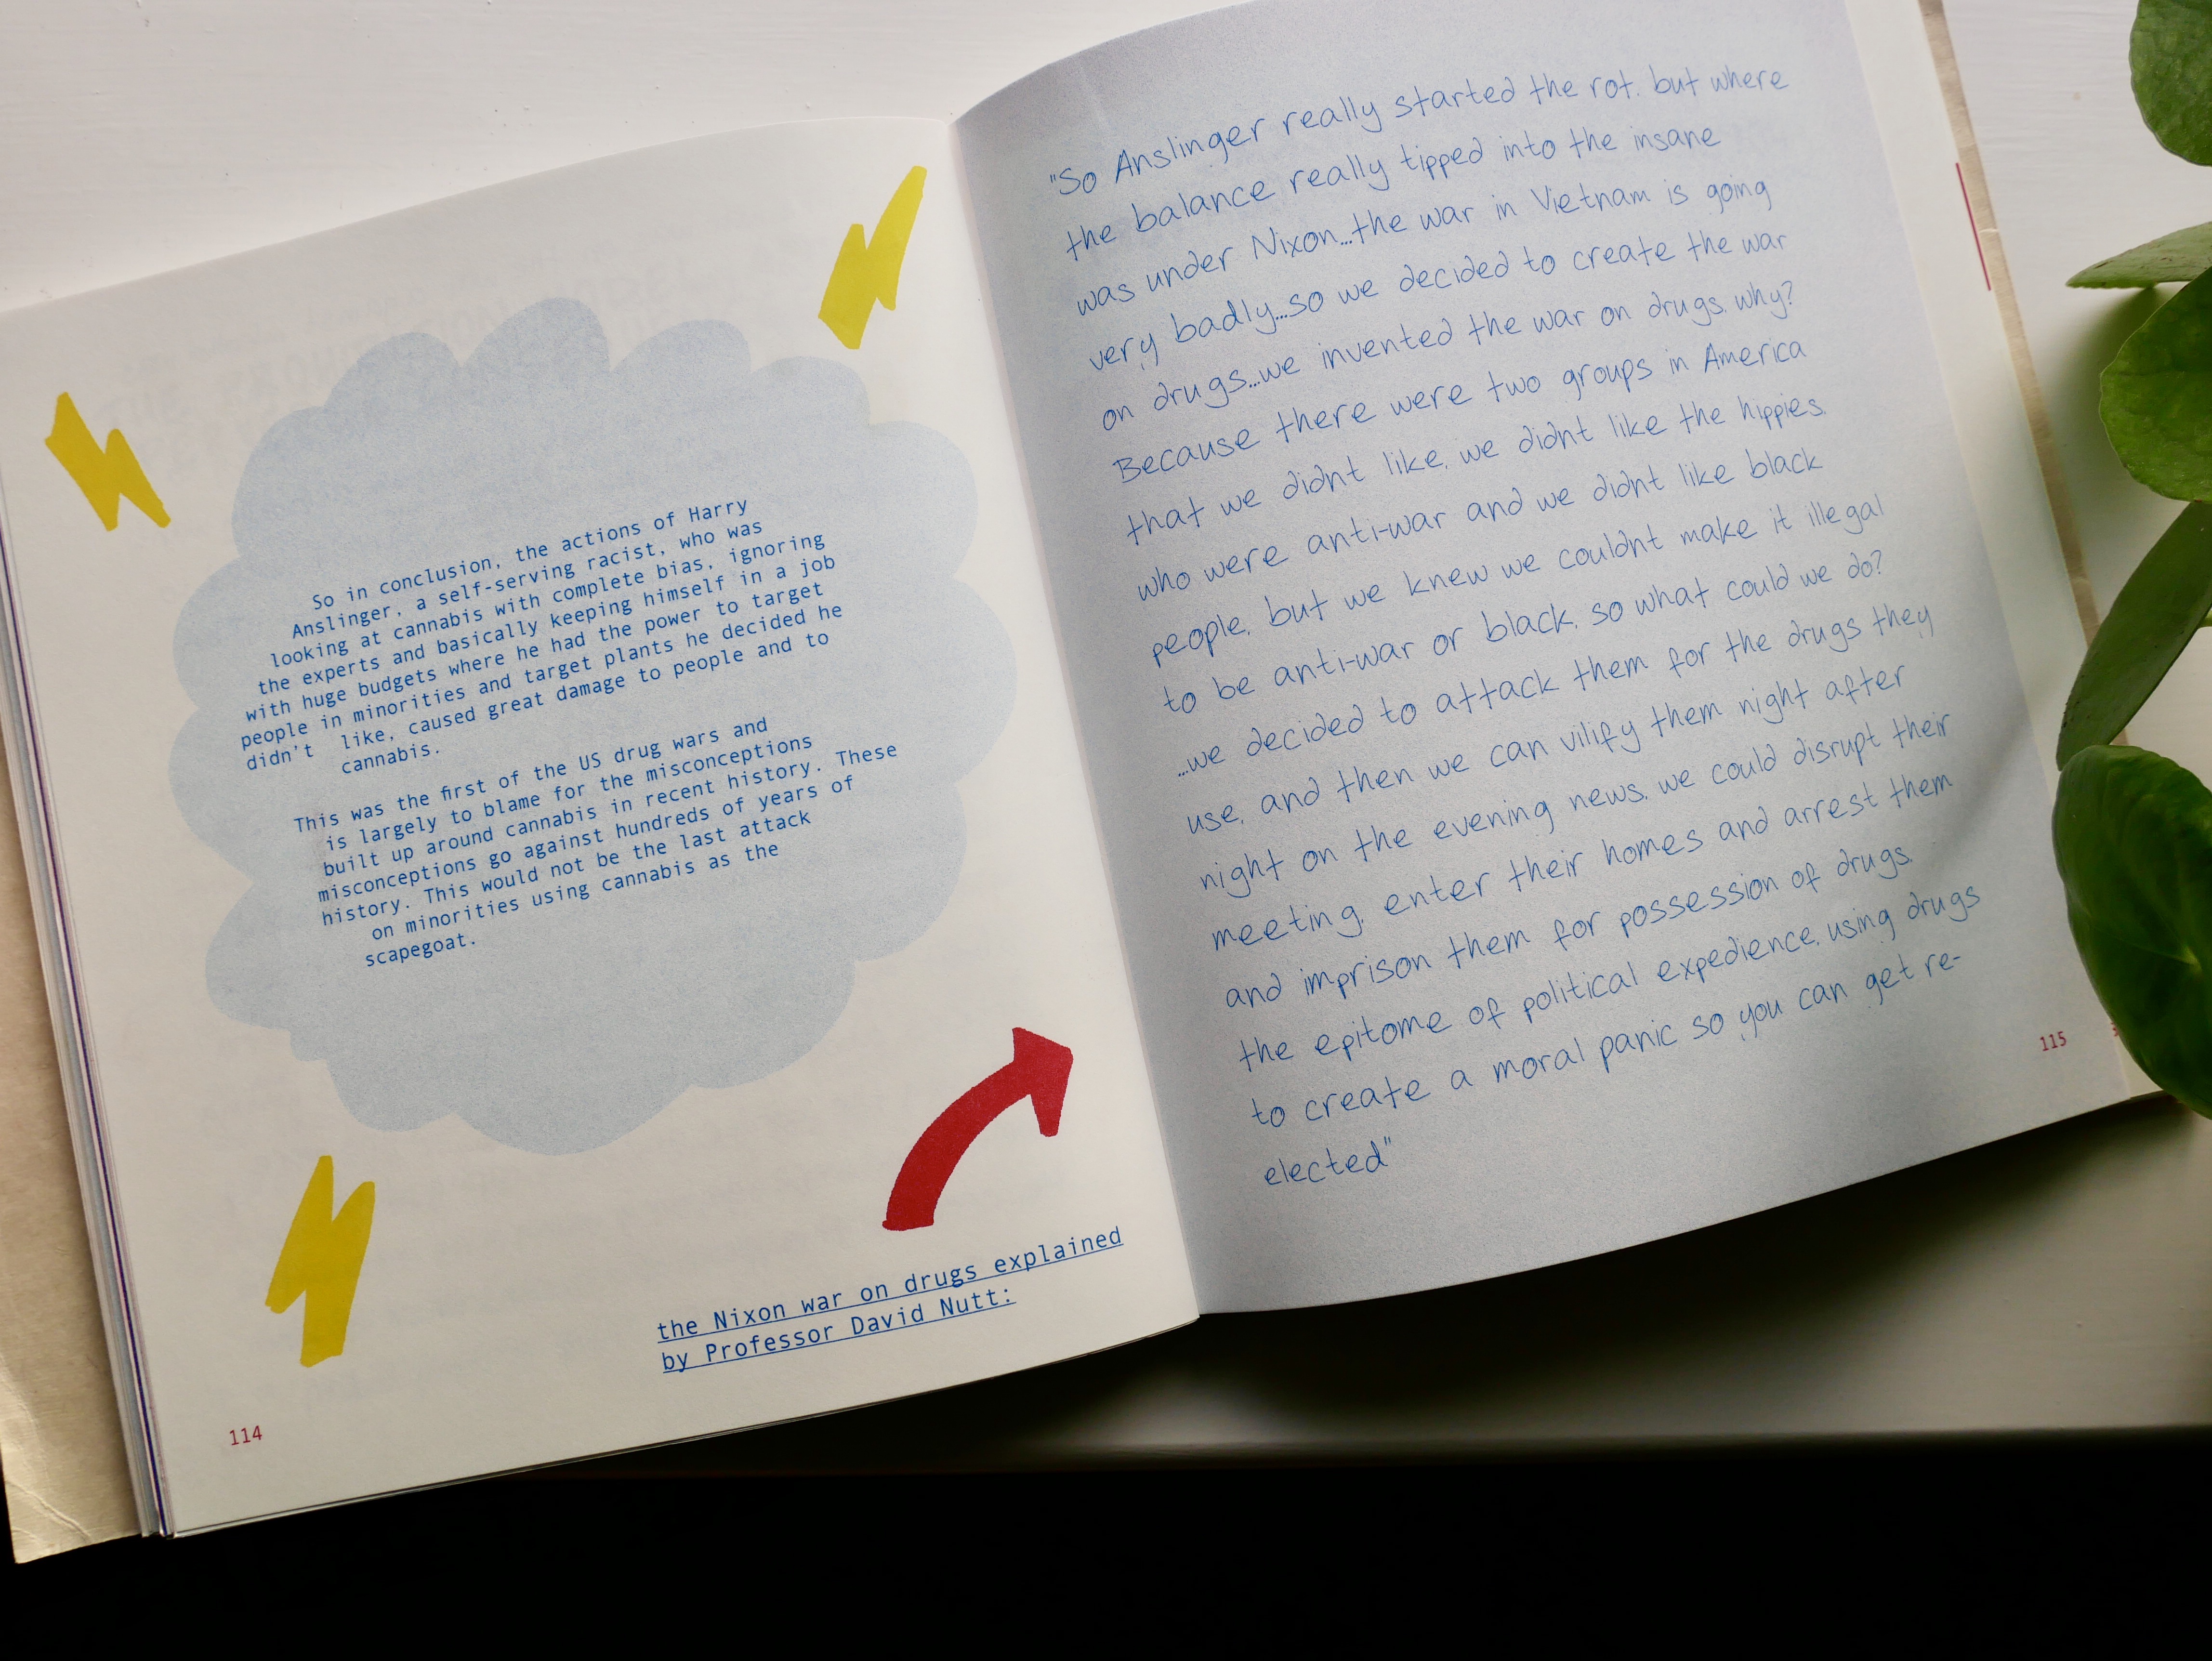 So in conclusion, the actions of Harry
Anslinger, a self-serving racist, who was
looking at cannabis with complete bias, ignoring
the experts and basically keeping himself in a job
with huge budgets where he had the power to target
people in minorities and target plants he decided he
didn't like, caused great damage to people and to
cannabis.
This was the first of the US drug wars and
is largely to blame for the misconceptions
built up around cannabis in recent history. These
misconceptions go against hundreds of years of
history. This would not be the last attack
on minorities using cannabis as the
scapegoat.
the Nixon war on drugs explained
by Professor David Nutt:
114
"So Anslinger really started the rot. but where
the balance really tipped into the insane
was under Nixon...the war in Vietnam is going
very badly...so we decided to create the war
on drugs...we invented the war on drugs. why?
Because there were two groups in America
that we didnt like. we didnt like the hippies.
who were anti-war and we didnt like black
people. but we knew we couldnt make it illegal
to be anti-war or black. so what could we do?
...we decided to attack them for the drugs they
use. and then we can vilify them night after
night on the evening news. we could disrupt their
meeting. enter their homes and arrest them
and imprison them for possession of drugs.
the epitome of political expedience. using drugs
to create a moral panic so you can get re-
elected"
115